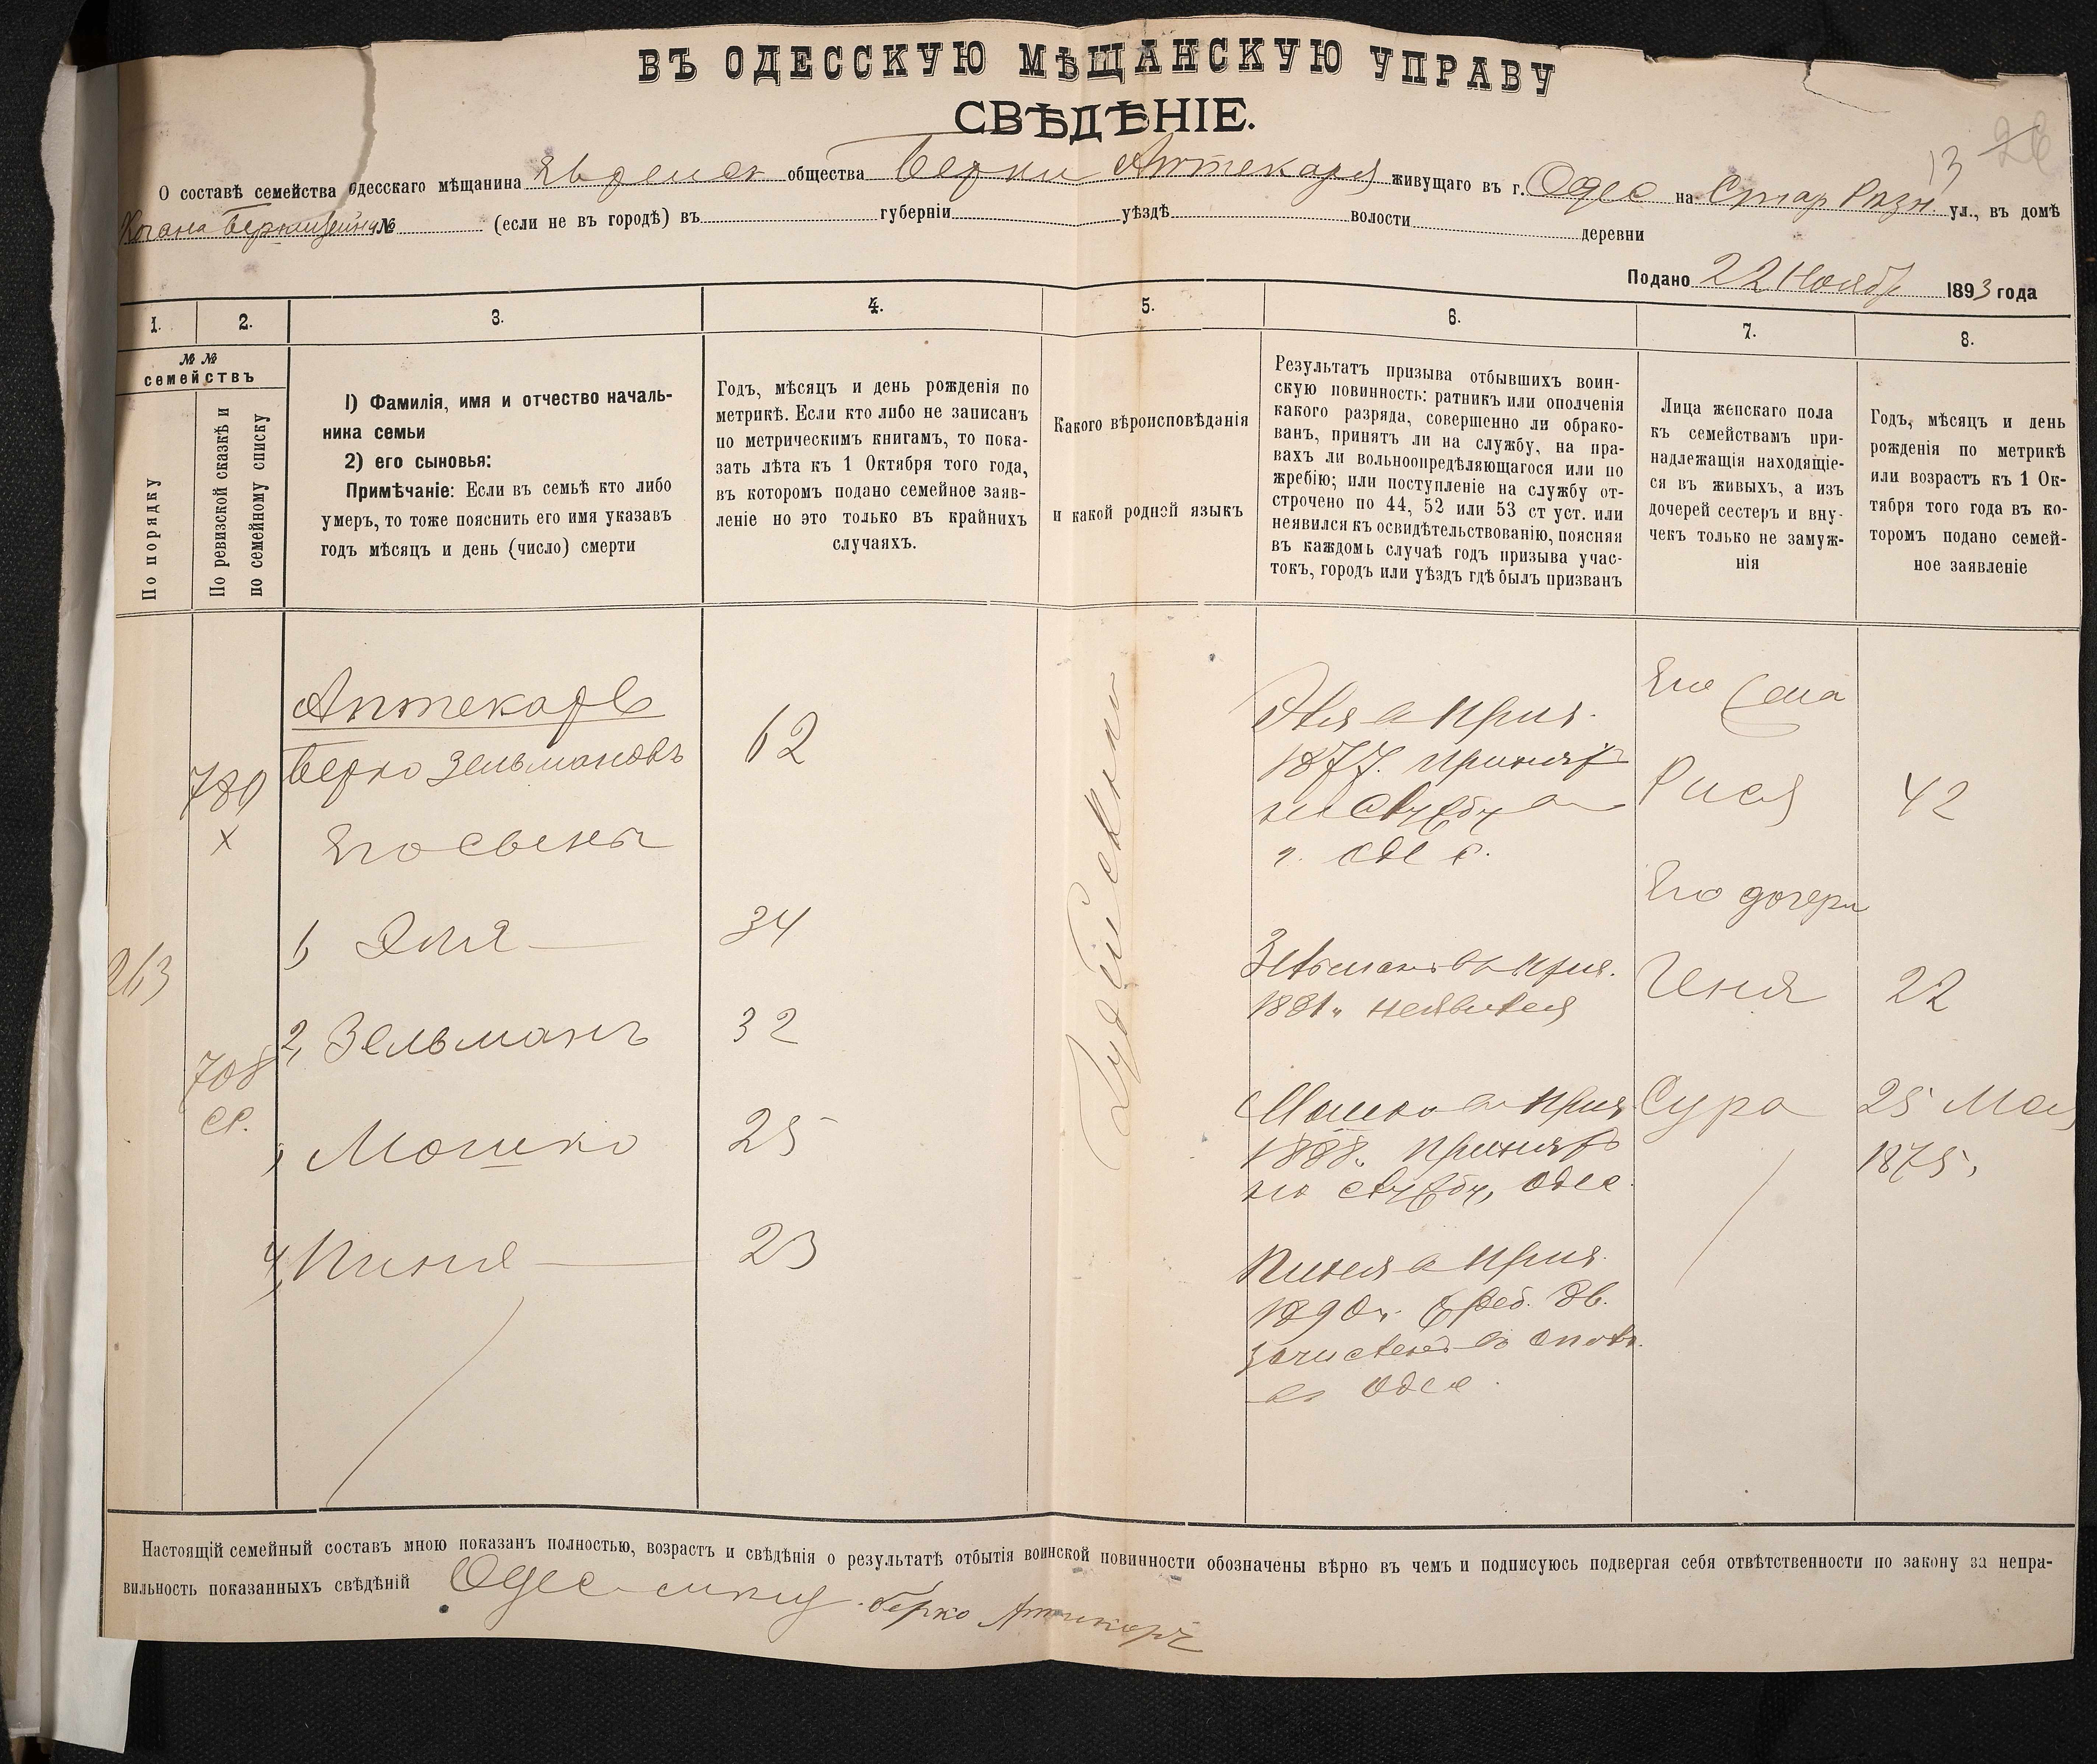 ВЪ ОДЕССКУЮ МѢЩАНСКУЮ УПРАВУ
СВѢДѢНІЕ.
26
13
О составѣ семейства одесскаго мѣщанина Еврейск общества Берки Аптекаря живущаго въ г. Одес на Стар Рѣзн ул., въ домѣ
Когана Бернштейна № (если не въ городѣ) въ губерніи уѣздѣ волости деревни
Подано 22 Ноябр 1893 года
1.
2.
3.
4.
5.
6.
7.
8.
№ №
семействъ
По порядку
По ревизской сказкѣ и
по семейному списку
1) Фамилія, имя и отчество началь-
ника семьи
2) его сыновья:
Примѣчаніе: Если въ семьѣ кто либо
умеръ, то тоже пояснить его имя указавъ
годъ мѣсяцъ и день (число) смерти
Годъ, мѣсяцъ и день рожденія по
метрикѣ. Если кто либо не записанъ
по метрическимъ книгамъ, то пока-
зать лѣта къ 1 Октября того года,
въ которомъ подано семейное заяв-
леніе но это только въ крайнихъ
случаяхъ.
Какого вѣроисповѣданія
и какой родной языкъ
Результатъ призыва отбывшихъ воин-
скую повинность: ратникъ или ополченія
какого разряда, совершенно ли обрако-
ванъ, принятъ ли на службу, на пра-
вахъ ли вольноопредѣляющагося или по
жребію; или поступленіе на службу от-
строчено по 44, 52 или 53 ст уст. или
неявился къ освидѣтельствованію, поясняя
въ каждомъ случаѣ годъ призыва учас-
токъ, городъ или уѣздъ гдѣ былъ призванъ
Лица женскаго пола
къ семействамъ при-
надлежащія находящіе-
ся въ живыхъ, а изъ
дочерей сестеръ и вну-
чекъ только не замуж-
нія
Годъ, мѣсяцъ и день
рожденія по метрикѣ
или возрастъ къ 1 Ок-
тября того года въ ко-
торомъ подано семей-
ное заявленіе
263
780
х
708
ср.
Аптекарь
Берко Зельмановъ
Его сыны
1, Эля
2, Зельманъ
Мошко
4, Пиня
62
34
32
25
23
Іудейскаго
Эля въ приз.
1877. принятъ
на службу въ
г. Одес.
Зельманъ въ приз.
1881 г. неявился
Мошко въ приз
1888 г. принятъ
на службу, Одес.
Пиня въ приз.
1890 г. жреб.
зачисленъ въ ополч.
въ Одес.
Его жена
Рися
Его дочери
Геня
Сура
42
22
25 Мая
1875,
Настоящій семейный составъ мною показанъ полностью, возрастъ и свѣдѣнія о результатѣ отбытія воинской повинности обозначены вѣрно въ чемъ и подписуюсь подвергая себя отвѣтственности по закону за непра-
вильность показанныхъ свѣдѣній Одес мѣщ. берко Аптикарь